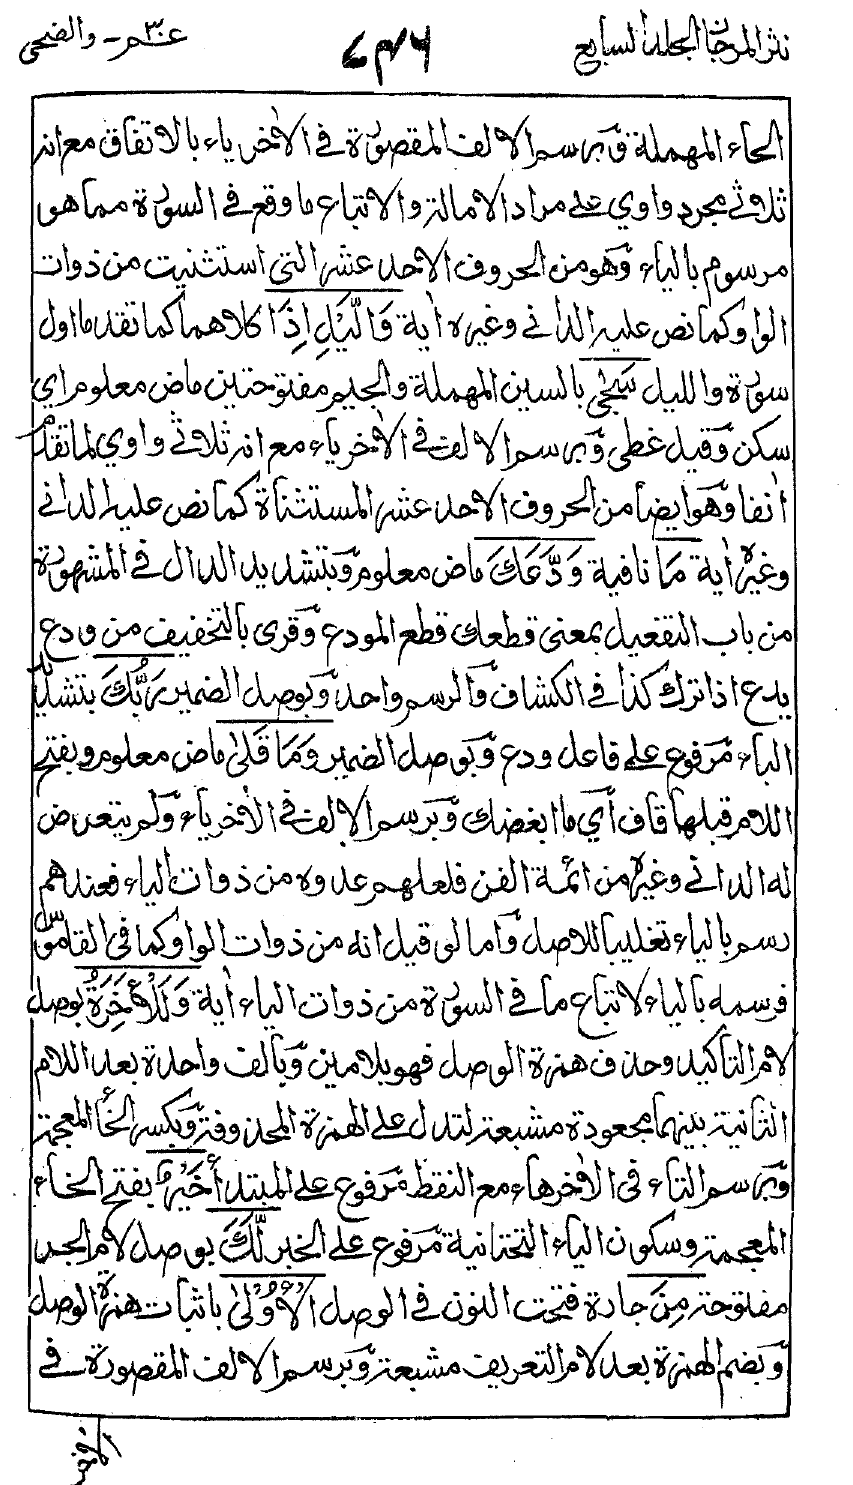 نثر المرجان الجلد السابع
٧٤٦
عم ٣٠ - والضحى
الحاء المهملة وبرسم الالف المقصورة في الاٰخر ياء بالاتفاق مع انه
ثلاثي مجرد واوي على مراد الامالة والاتباع ما وقع في السورة مما هو
مرسوم بالياء وهو من الحروف الاحد عشر التي استثنيت من ذوات
الواو كما نص عليه الداني وغيره اٰية وَالَّيْلِ إِذَا كلاهما كما تقدما اول
سورة والليل سَجٰى بالسين المهملة والجيم مفتوحتين ماض معلوم اي
سكن وقيل غطى وبرسم الالف في الاٰخر ياء مع انه ثلاثي واوي لما تقدم
اٰنفا وهو ايضا من الحروف الاحد عشر المستثناة كما نص عليه الداني
وغيره اٰية مَا نافية وَدَّعَكَ ماض معلوم وبتشديد الدال في المشهورة
من باب التفعيل بمعنى قطعك قطع المودع وقرئ بالتخفيف من ودع
يدع اذا ترك كذا في الكشاف والرسم واحد وبوصل الضمير رَبُّكَ بتشديد
الباء مرفوع على فاعل ودع وبوصل الضمير وَمَا قَلٰى ماض معلوم وبفتح
اللام قبلها قاف أي ما ابغضك وبرسم الالف في الاٰخر ياء ولم يتعرض
له الداني وغيره من ائمة الفن فلعلهم عدوه من ذوات الياء فعندهم
رسم بالياء تغليبا للاصل واما لو قيل انه من ذوات الواو كما في القاموس
فرسمه بالياء لاتباع ما في السورة من ذوات الياء اٰية وَلَلْاٰخِرَةُ بوصل
لام التأكيد وحذف همزة الوصل فهو بلامين وبالف واحدة بعد اللام
الثانية بينهما مجعودة مشبعة لتدل على الهمزة المحذوفة وبكسر الخاء المعجمة
وبرسم التاء في الاٰخر هاء مع النقط مرفوع على المبتدأ خَيْرٌ بفتح الخاء
المعجمة وسكون الياء التحتانية مرفوع على الخبر لَّكَ بوصل لام الجر
مفتوحة مِنَ جارة فتحت النون في الوصل الْأُوْلٰى باثبات همزة الوصل
وبضم الهمزة بعد لام التعريف مشبعة وبرسم الالف المقصورة في
الاٰخر